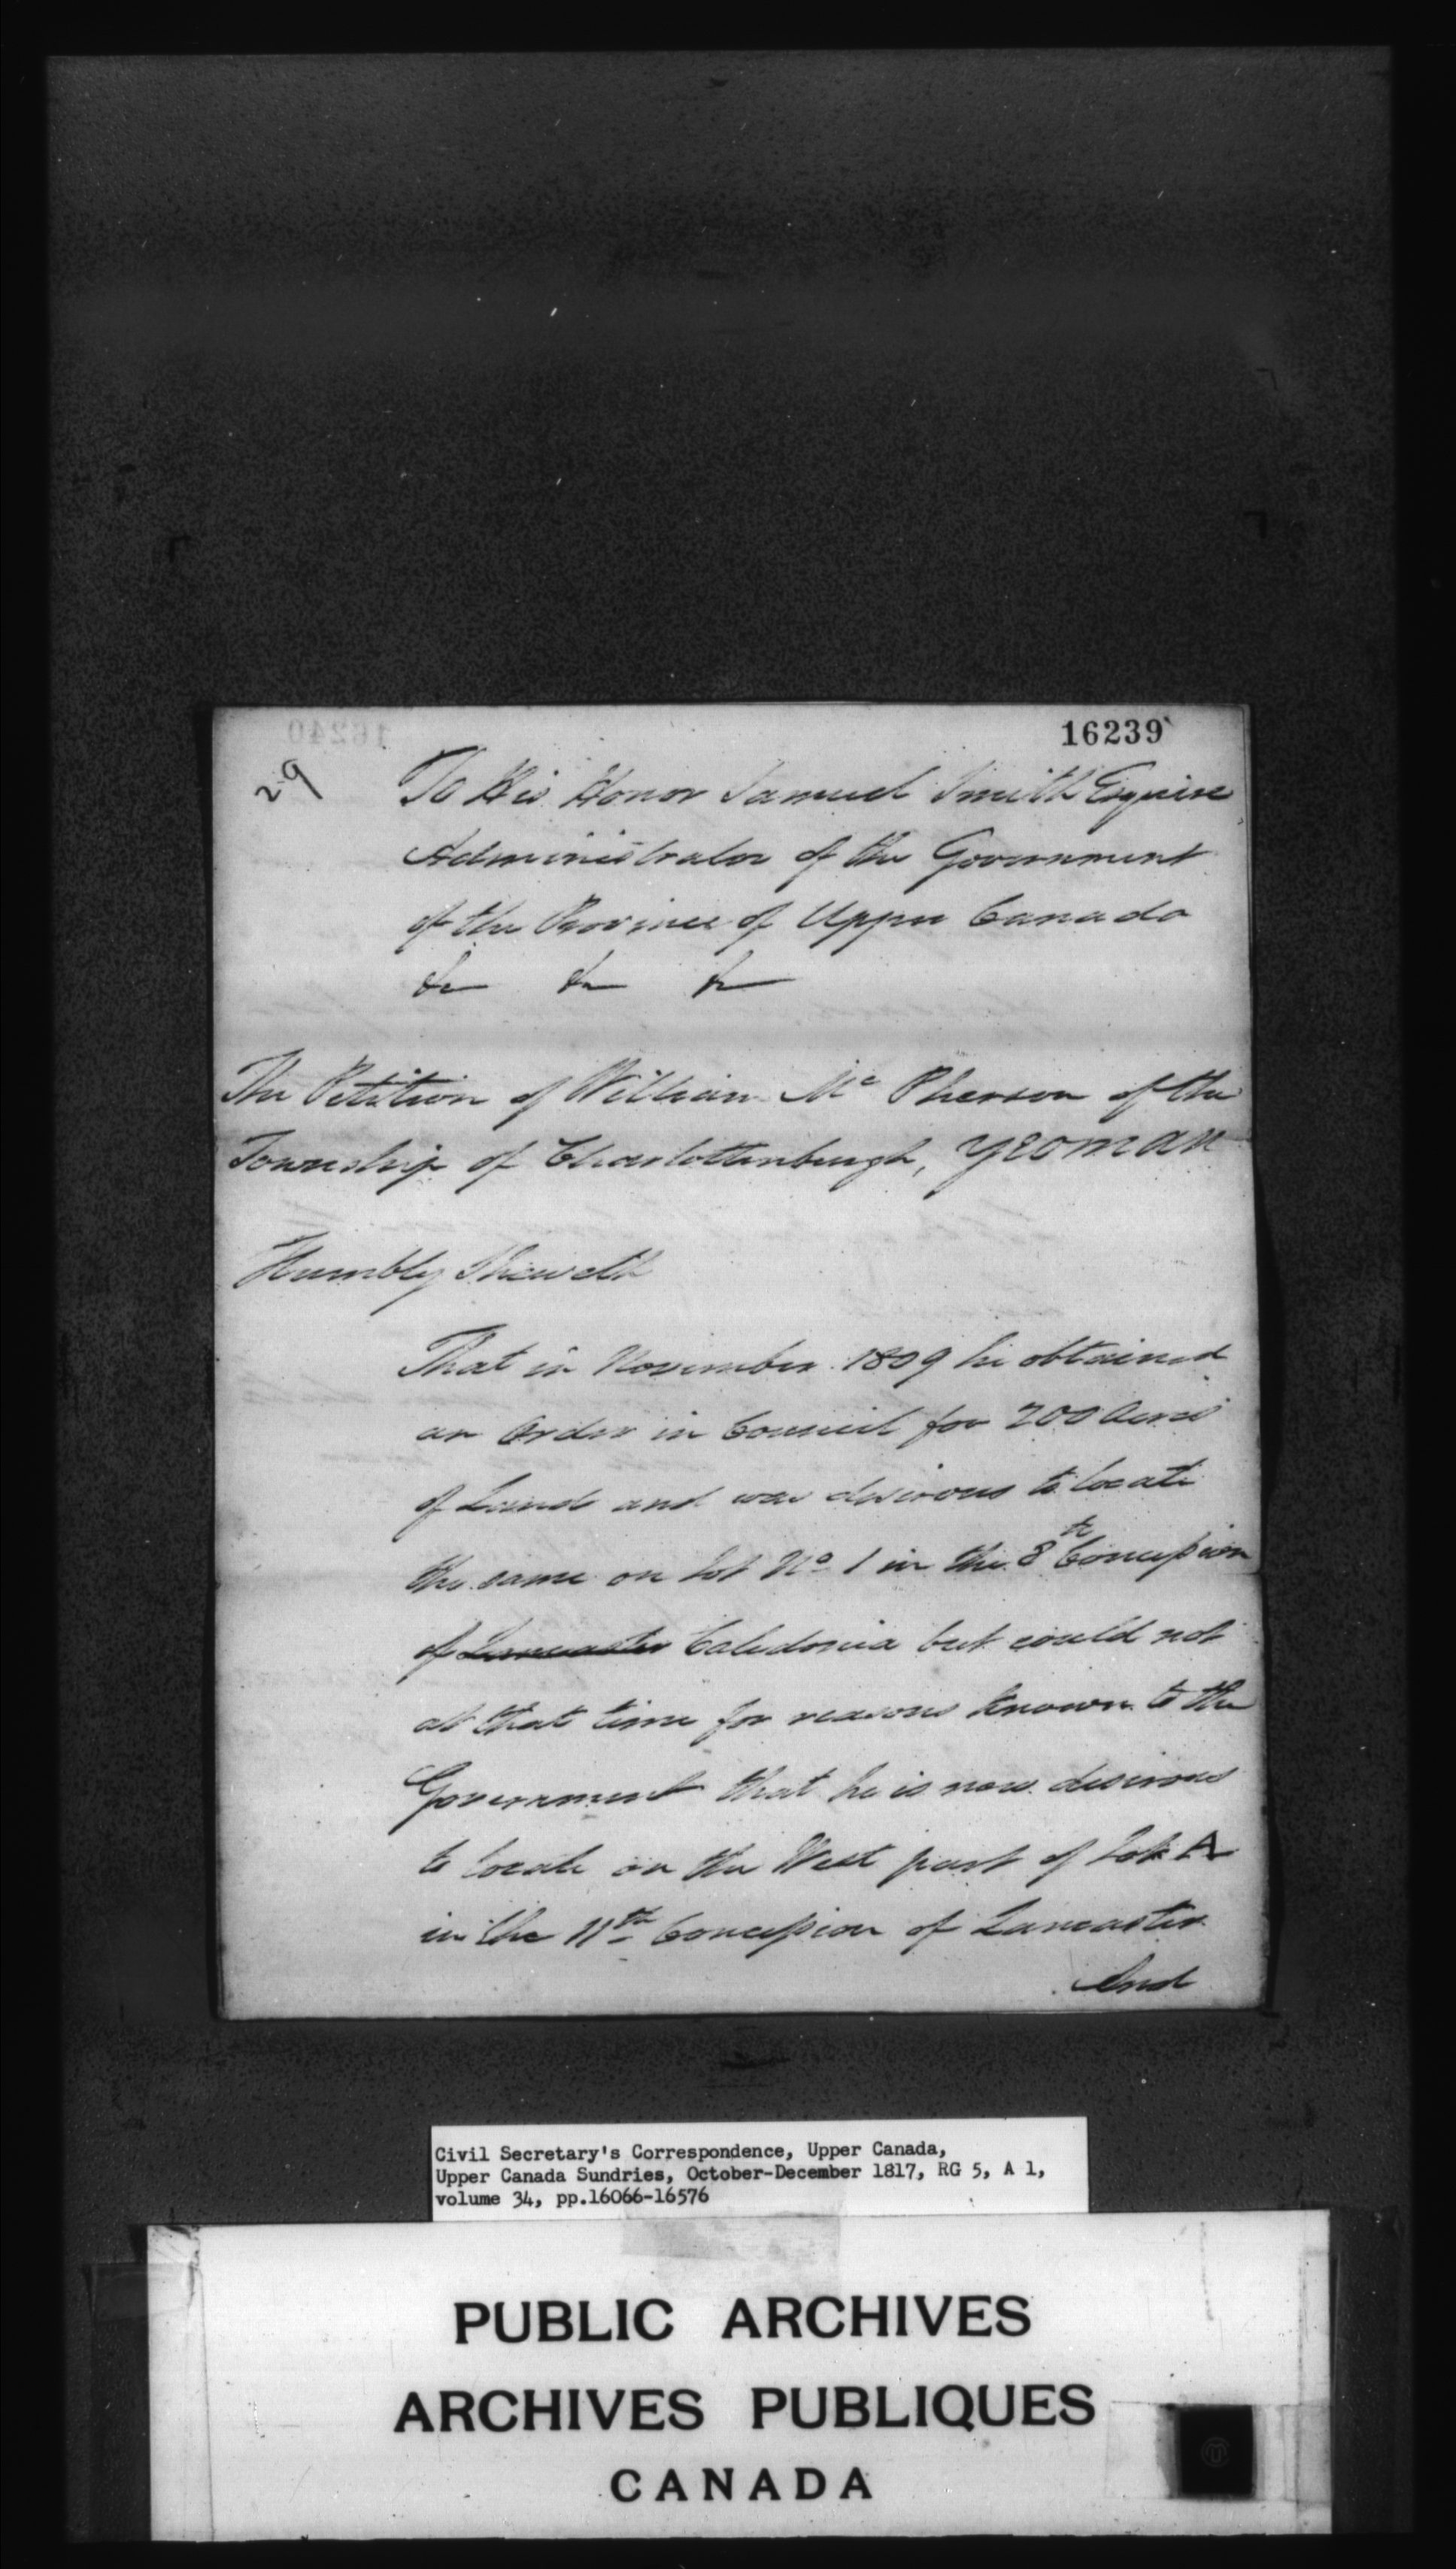 16239
29
To His Honor Samuel Smith Esquire
Administrator of the Government
of the Province of Upper Canada
&c &c &c
The Petition of William Mc Pherson of the
Township of Charlottenburgh, Yeoman
Humbly Sheweth
That in November 1809 he obtained
an Order in Council for 200 Acres
of Land and was desirous to locate
the same on Lot No 1 in the 8th Concession
of Lancaster Caledonia but could not
at that time for reasons known to the
Government that he is now desirous
to locate on the West part of Lot A
in the 11th Concession of Lancaster
And
Civil Secretary's Correspondence, Upper Canada,
Upper Canada Sundries, October-December 1817, RG 5, A 1,
volume 34, pp.16066-16576
PUBLIC ARCHIVES
ARCHIVES PUBLIQUES
CANADA